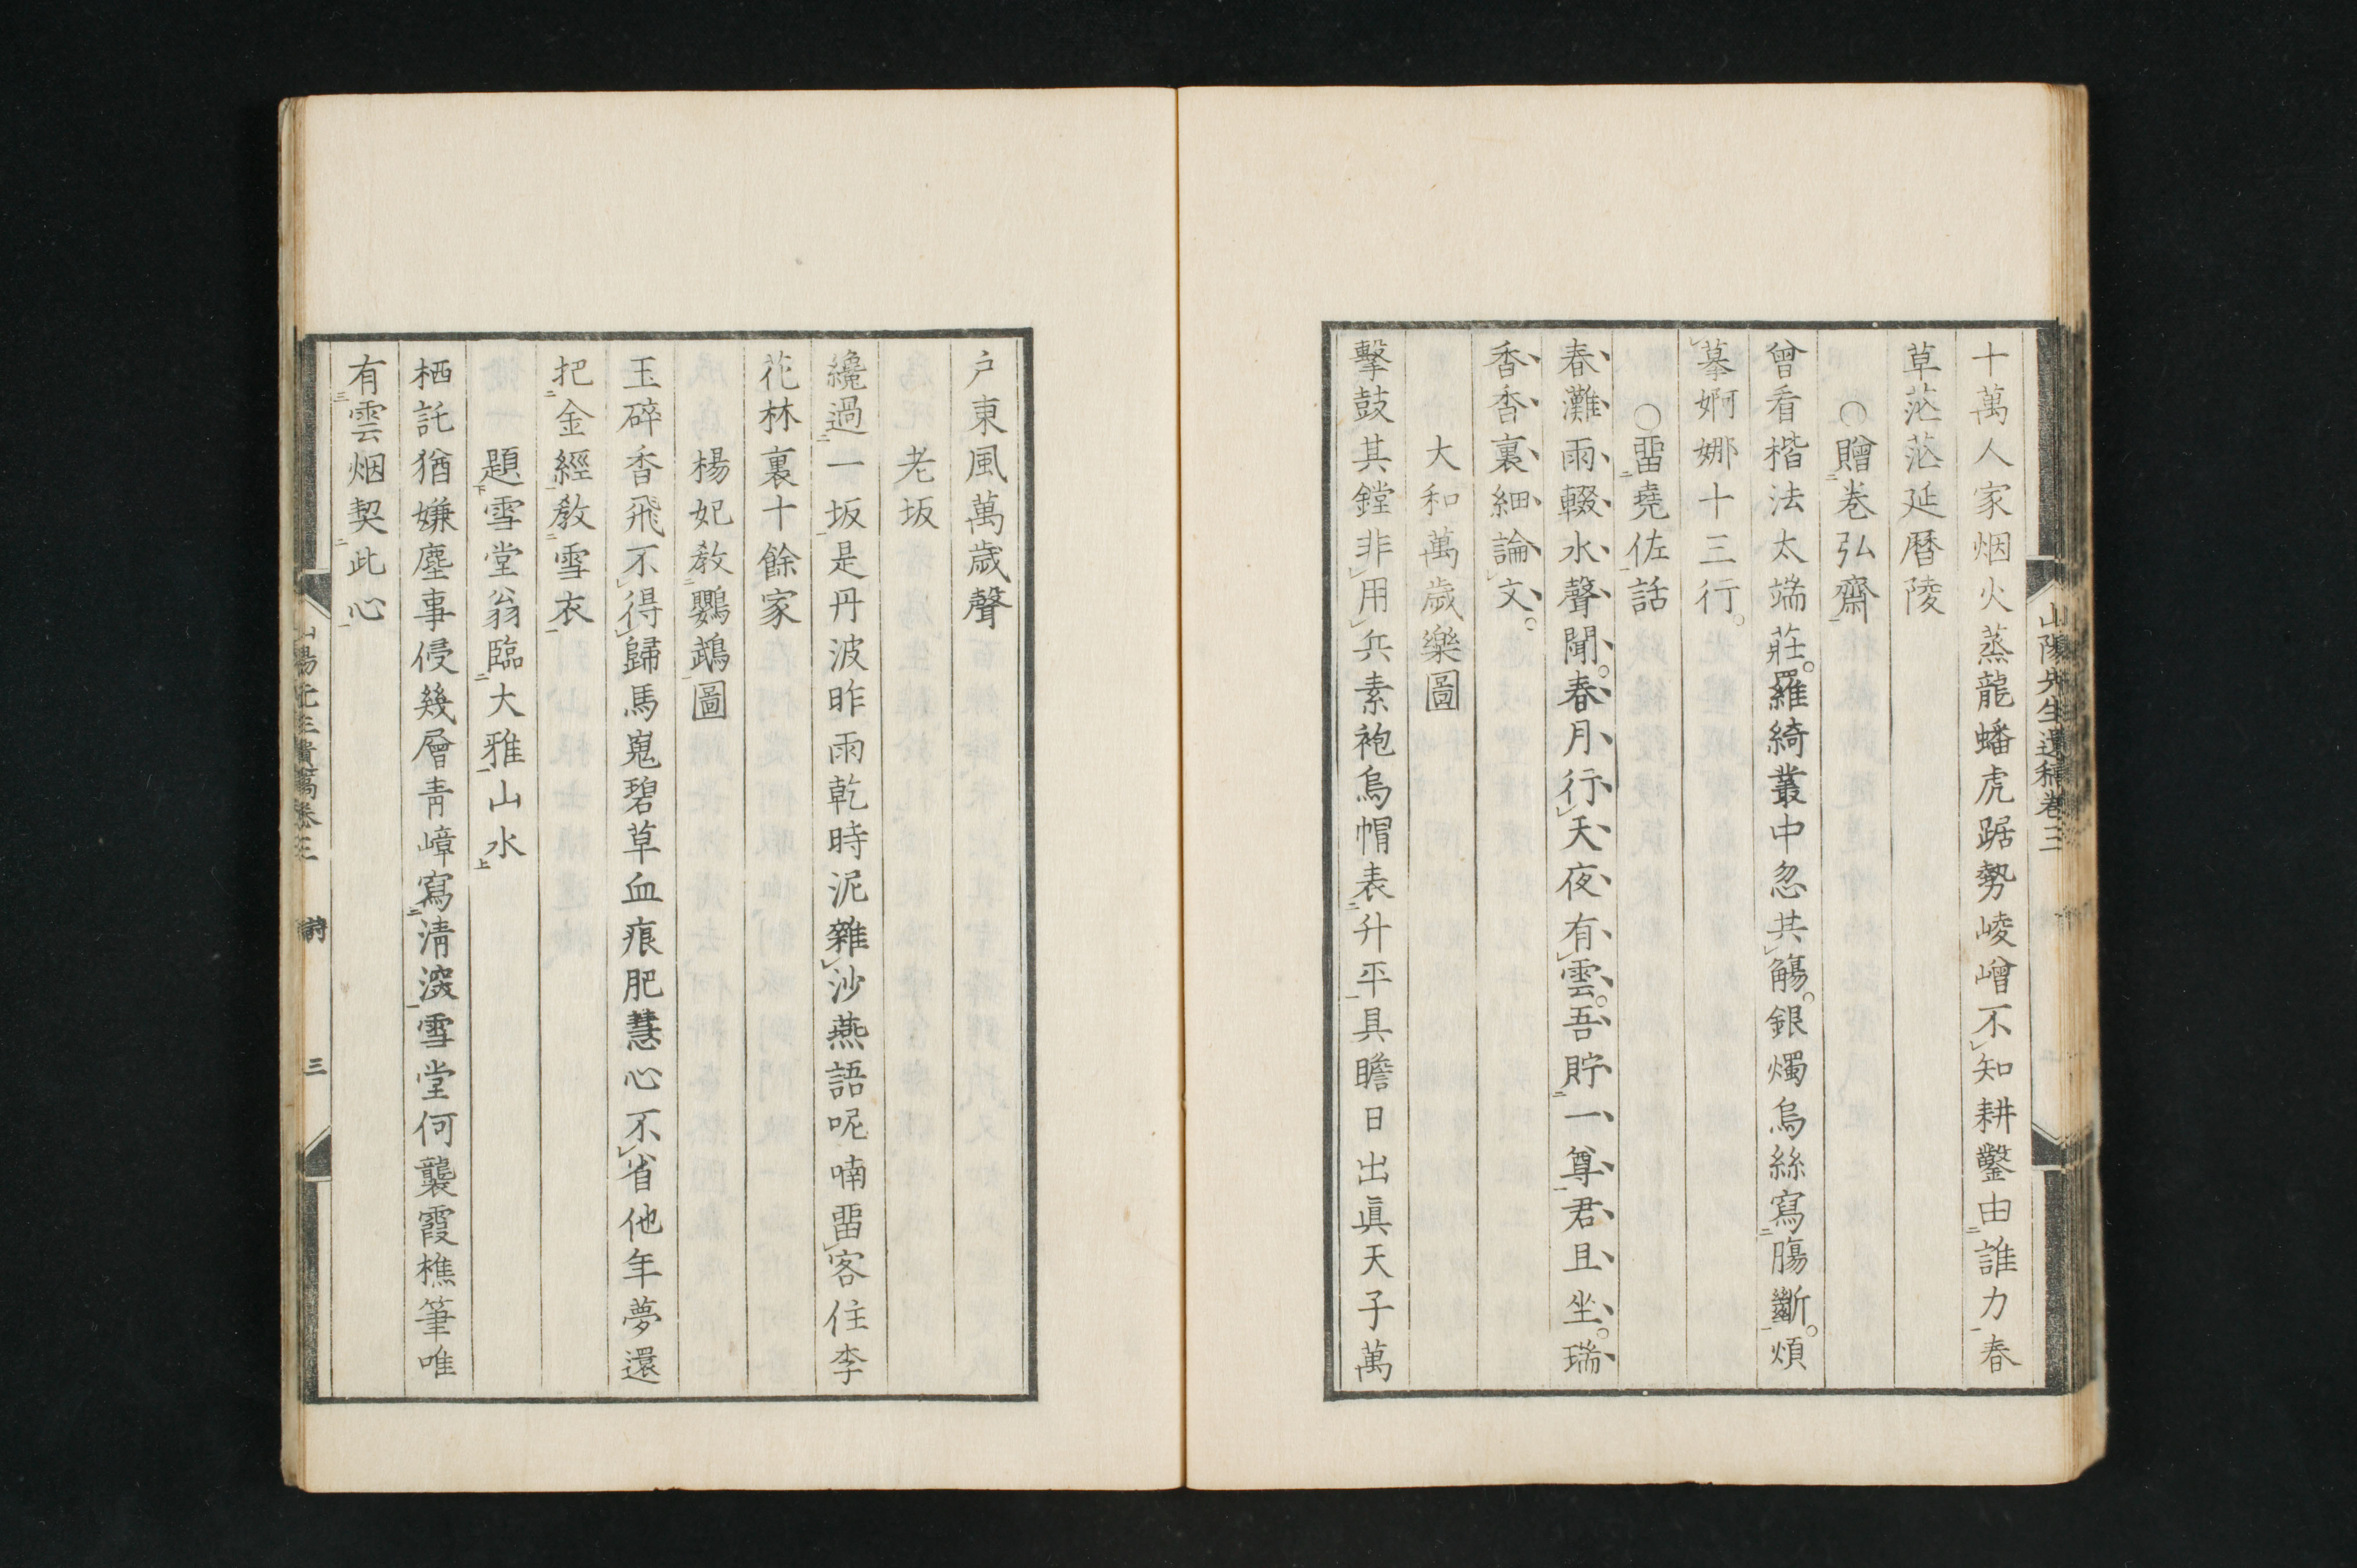 山陽先生遺稿卷三
十萬人家烟火蒸龍蟠虎踞勢崚嶒不知耕鑿由誰力春
草茫茫延曆陵
○贈巻弘齋
曾看楷法太端莊。羅綺叢中忽共觴。銀燭烏絲寫膓斷。煩
摹婀娜十三行。
○畱堯佐話
春灘雨輟水聲聞。春月行天夜有雲。吾貯一尊君且坐。瑞
香香裏細論文。
大和萬歲樂圖
擊鼓其鏜非用兵素袍烏帽表升平具瞻日出眞天子萬
戶東風萬歲聲
老坂
纔過一坂是丹波昨雨乾時泥雜沙燕語呢喃畱客住李
花林裏十餘家
楊妃教鸚鵡圖
玉碎香飛不得歸馬嵬碧草血痕肥慧心不省他年夢還
把金經教雪衣
題雪堂翁臨大雅山水
栖託猶嫌塵事侵幾層青嶂寫清深雪堂何襲霞樵筆唯
有雲烟契此心
詩
三